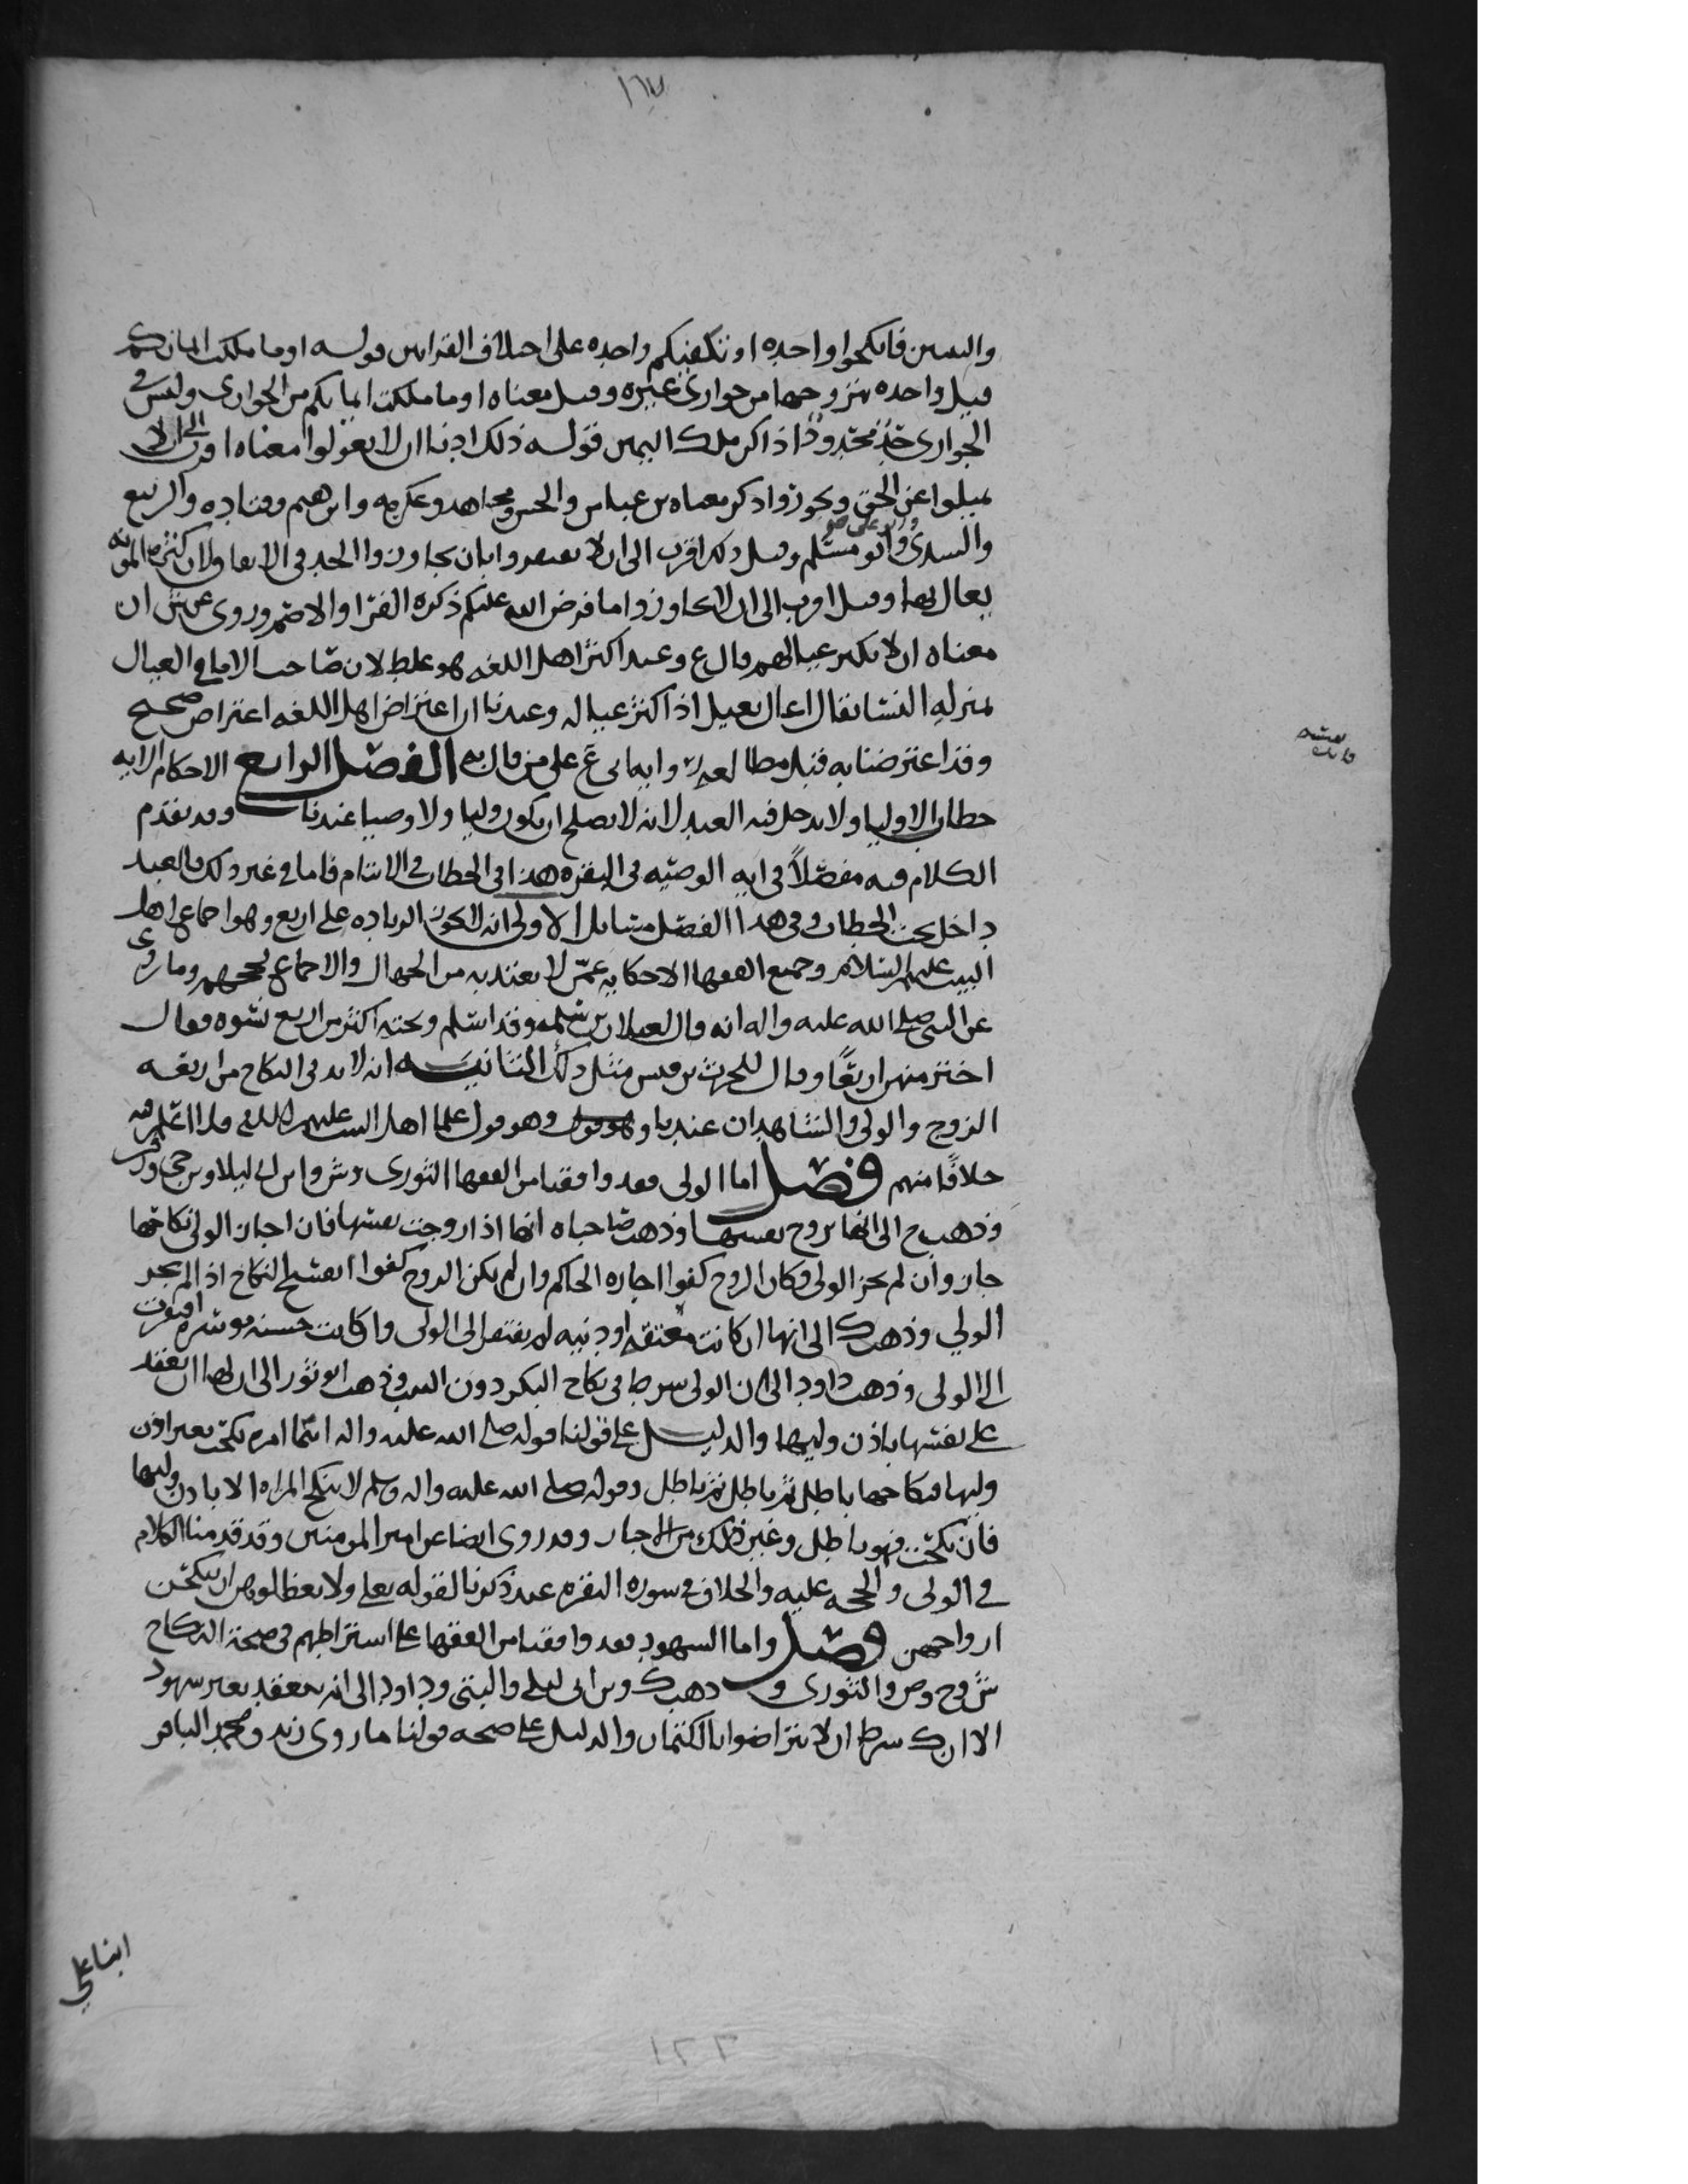 ١٦٧
فانكحوا واحده او تكفيكم واحده على اختلاف القراتين قوله او ما ملكت ايمانكم
قيل واحده يتزوجها من جواري غيره وقيل معناه او ما ملكت ايمانكم من الجواري وليس في
الجواري حد محدود اذا كن ملك اليمين قوله ذلك ادنا ان لا تعولوا معناه اقرب الى ان لا
تميلوا عن الحق وتجوزوا ذكر معناه بن عباس والحسن ومجاهد وعكرمه وابرهيم وقتاده والربيع
والسدي وابو مسلم وقيل ذلك اقرب الى ان لا تفتقروا بان تجاوزوا الحد في الانفاق ولان كثره المونه
يعال بها وقيل اقرب الى ان لا تجاوزوا ما فرض الله عليكم ذكره الفرا والاصم وروي عن ش ان
معناه ان لا تكثر عيالهم قال ع وعند اكثر اهل اللغه هو غلط لان صاحب الاما في العيال
بمنزله النسا يقال اعال يعيل اذا كثر عياله وعندنا ان اعتراض اهل اللغه اعتراض صحيح
وقد اعترضنا به قبل مطالعه على من قال به الفصل الرابع الاحكام الايه
خطاب الاوليا ولا يدخل فيه العبد لانه لا يصلح ان يكون وليا ولا وصيا عندنا وقد تقدم
الكلام فيه مفصلا في ايه الوصيه في البقره هذا في الخطاب في الايتام فاما في غير ذلك فالعبد
داخل تحت الخطاب وفي هذا الفصل مسايل الاولى انه لا تجوز الزياده على اربع وهو اجماع اهل
البيت عليهم السلام وجميع الفقها الا حكايه عمن لا يعتد به من الجهال والاجماع يحجهم وما روي
عن النبي صلى الله عليه واله انه قال لغيلان بن سلمه وقد اسلم وتحته اكثر من اربع نسوه فقال
اختر منهن اربعا وقال للحرث بن قيس مثل ذلك الثانيه انه لا بد في النكاح من اربعه
الزوج والولي والشاهدان عندنا وهو قول علما اهل البيت عليهم السلام فلا اعلم فيه
خلافا منهم فصل اما الولي فقد وافقنا من الفقها الثوري وش وابن ابي ليلا
وذهب ح الى انها تزوج نفسها وذهب صاحباه انها اذا زوجت نفسها فان اجاز الولي نكاحها
جاز وان لم يجز الولي وكان الزوج كفوا اجازه الحاكم وان لم يكن الزوج كفوا انفسخ النكاح اذا لم يجز
الولي وذهب ك الى انها ان كانت معتقه او دنيه لم يفتقر الى الولي وان كانت حسنه موسره افتقرت
الى الولي وذهب داود الى ان الولي شرط في نكاح البكر دون الثيب وذهب ابو ثور الى ان لها ان تعقد
على نفسها باذن وليها والدليل على قولنا قوله صلى الله عليه واله ايما امره نكحت بغير اذن
وليها فنكاحها باطل ثم باطل ثم باطل وقوله صلى الله عليه واله وسلم لا تنكح المراه الا باذن وليها
فان نكحت فهو باطل وغير ذلك من الاخبار وقد روي ايضا عن امير المومنين وقد قدمنا الكلام
في الولي والحجه عليه والخلاف في سوره البقره عند ذكرنا لقوله تعلى ولا تعظلوهن ان ينكحن
ازواجهن فصل واما الشهود فقد وافقنا من الفقها على اشتراطهم في صحة النكاح
ش وح وص والثوري و وذهب ك وبن ابي ليلى والبتي وداود الى انه ينعقد بغير شهود
الا ان ك شرط ان لا يتراضوا بالكتمان والدليل على صحه قولنا ما روى زيد ومحمد الباقر
ابنا علي